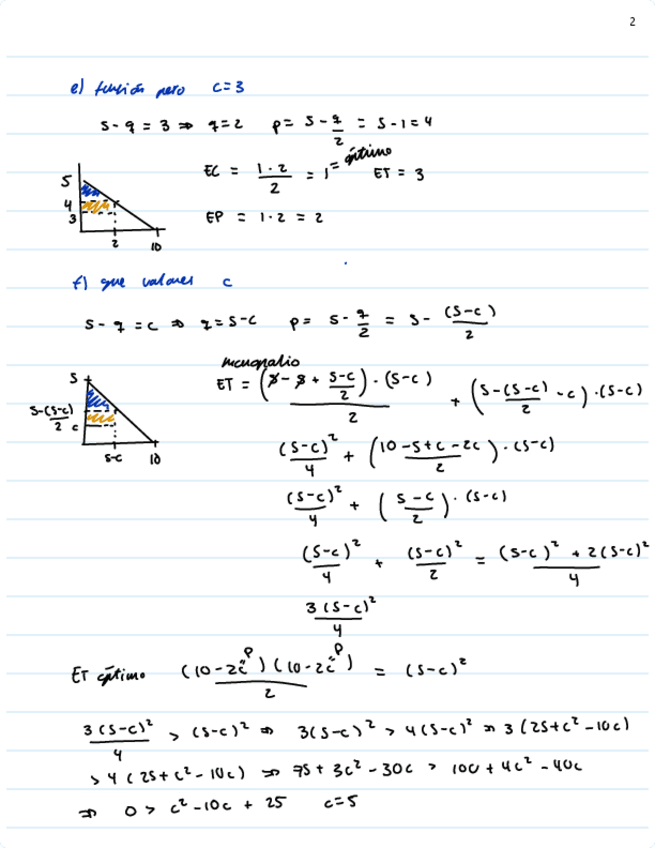 2
e) función pero c=3
5-q = 3 ⇒ q=2 p= 5-q/2 = 5-1=4
EC = 1·2/2 = 1 = óptimo ET = 3
EP = 1·2 = 2
5
4
3
2 10
f) que valores c
5-q = c ⇒ q=5-c p= 5-q/2 = 5- (5-c)/2
monopolio
ET = (5-5+ (5-c)/2)·(5-c)/2 + (5-(5-c)/2 -c)·(5-c)
5
5-(5-c)/2
c
5-c 10
(5-c)²/4 + (10-5+c-2c/2)·(5-c)
(5-c)²/4 + (5-c/2)·(5-c)
(5-c)²/4 + (5-c)²/2 = (5-c)² + 2(5-c)²/4
3(5-c)²/4
ET óptimo (10-2c)(10-2c)/2 = (5-c)²
P P
3(5-c)²/4 > (5-c)² ⇒ 3(5-c)² > 4(5-c)² ⇒ 3(25+c²-10c)
> 4(25+c²-10c) ⇒ 75+3c²-30c > 100+4c²-40c
⇒ 0 > c²-10c+25 c=5